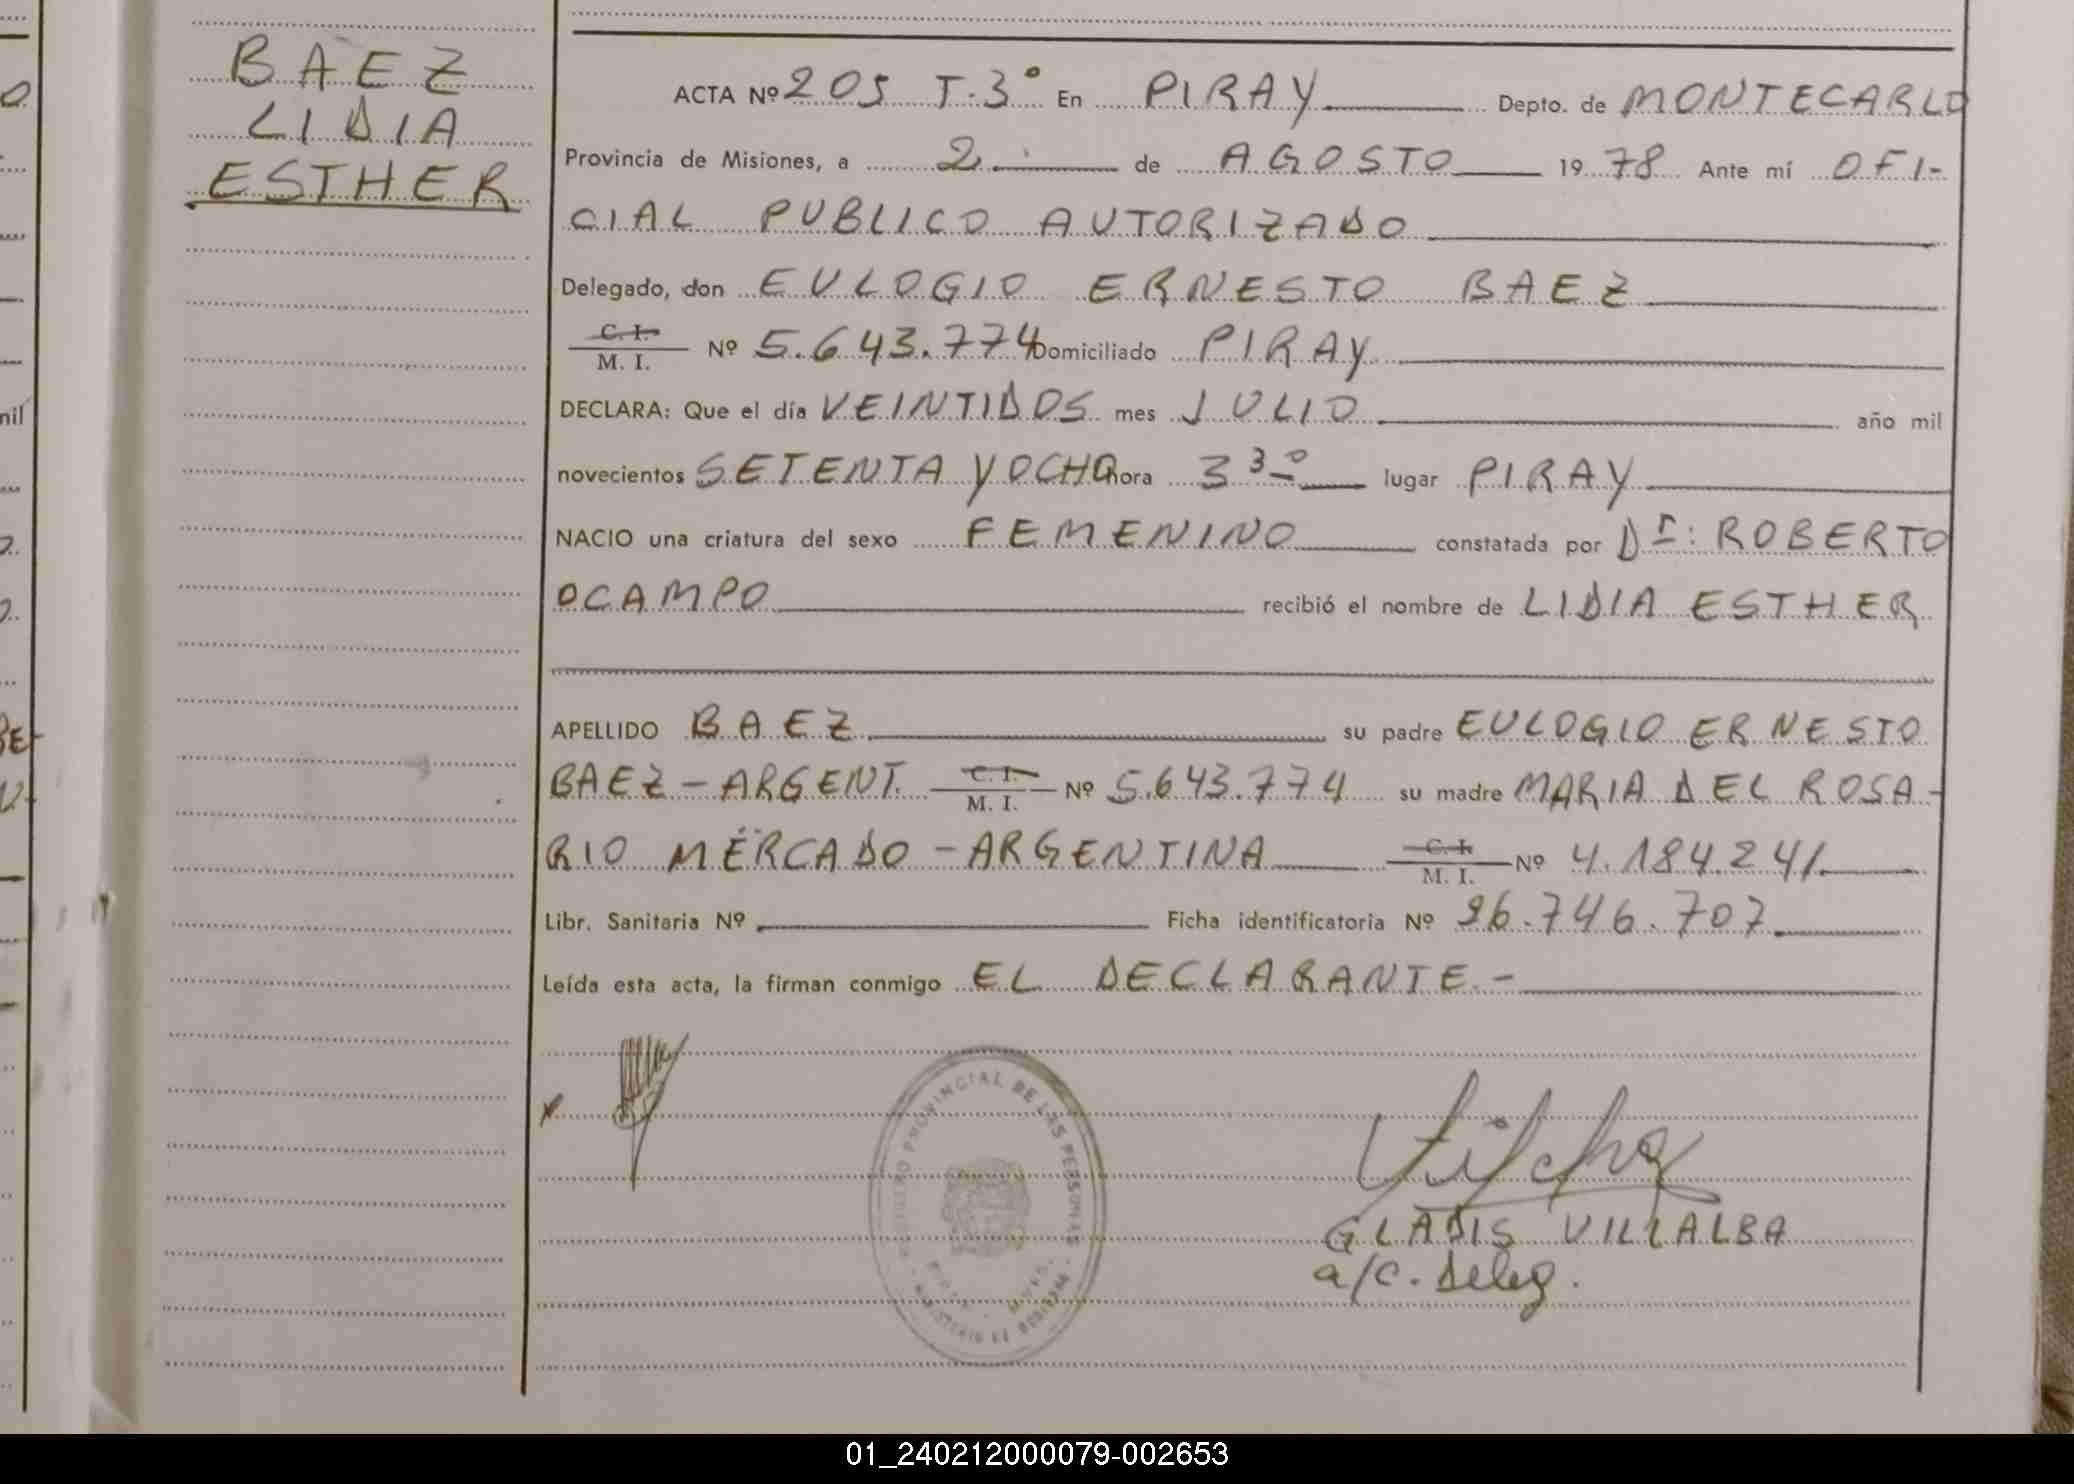 BAEZ
LIDIA
ESTHER
ACTA Nº 205 T.3º En PIRAY Depto. de MONTECARLO
Provincia de Misiones, a 2 de AGOSTO 1978 Ante mí OFI-
CIAL PUBLICO AUTORIZADO
Delegado, don EULOGIO ERNESTO BAEZ
C. I.
M. I. Nº 5.643.774 Domiciliado PIRAY
DECLARA: Que el día VEINTIDOS mes JULIO año mil
novecientos SETENTA Y OCHO hora 3 30 lugar PIRAY
NACIO una criatura del sexo FEMENINO constatada por Dr: ROBERTO
OCAMPO recibió el nombre de LIDIA ESTHER
APELLIDO BAEZ su padre EULOGIO ERNESTO
BAEZ - ARGENT. C. I. M. I. Nº 5.643.774 su madre MARIA DEL ROSA-
RIO MERCADO - ARGENTINA C. I. M. I. Nº 4.184.241
Libr. Sanitaria Nº Ficha identificatoria Nº 26.746.707
Leída esta acta, la firman conmigo EL DECLARANTE.-
PROVINCIAL DE LAS PERSONAS
MINISTERIO DE GOBIERNO
GLADIS VILLALBA
a/c. Deleg.
01_240212000079-002653